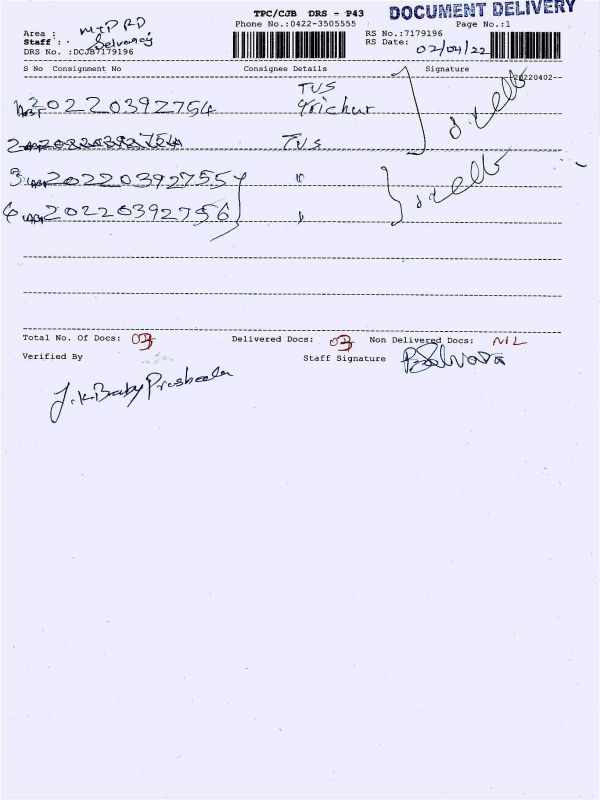 TPC/CJB DRS - P43 DOCUMENT DELIVERY
Area : MTP RD Phone No.:0422-3505555 Page No.:1
Staff : Selvaraj RS No.:7179196
DRS No. :DCJB7179196 RS Date: 02/04/22
S No Consignment No Consignee Details Signature
20220402--
TVS
20220392754 Trichur
2 20220392754 TVS
3 20220392755 "
4 20220392756 "
Total No. Of Docs: 03 Delivered Docs: 03 Non Delivered Docs: NIL
Verified By Staff Signature
J.K. Baby Prasheela